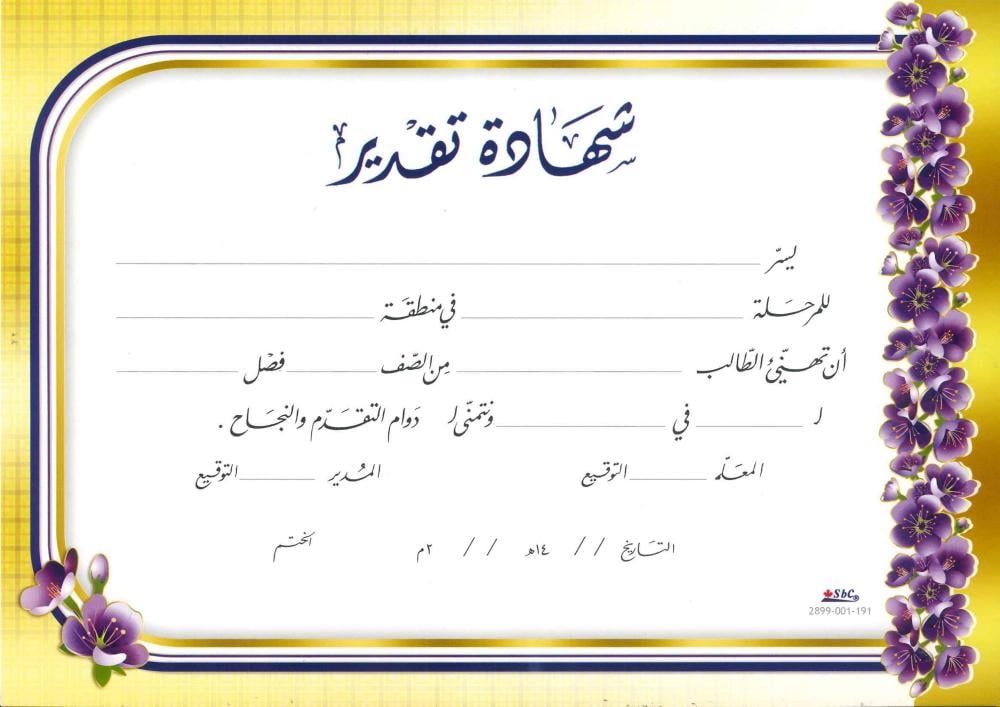 شهادة تقدير
يسرّ
للمرحلة في منطقة
أن تهنّئ الطّالب من الصّف فصْل
لـ في ونتمنّى لـ دوام التقدّم والنجاح .
المعلّم التوقيع المُدير التوقيع
التاريخ / / ١٤هـ / / ٢م الختم
SbC®
2899-001-191